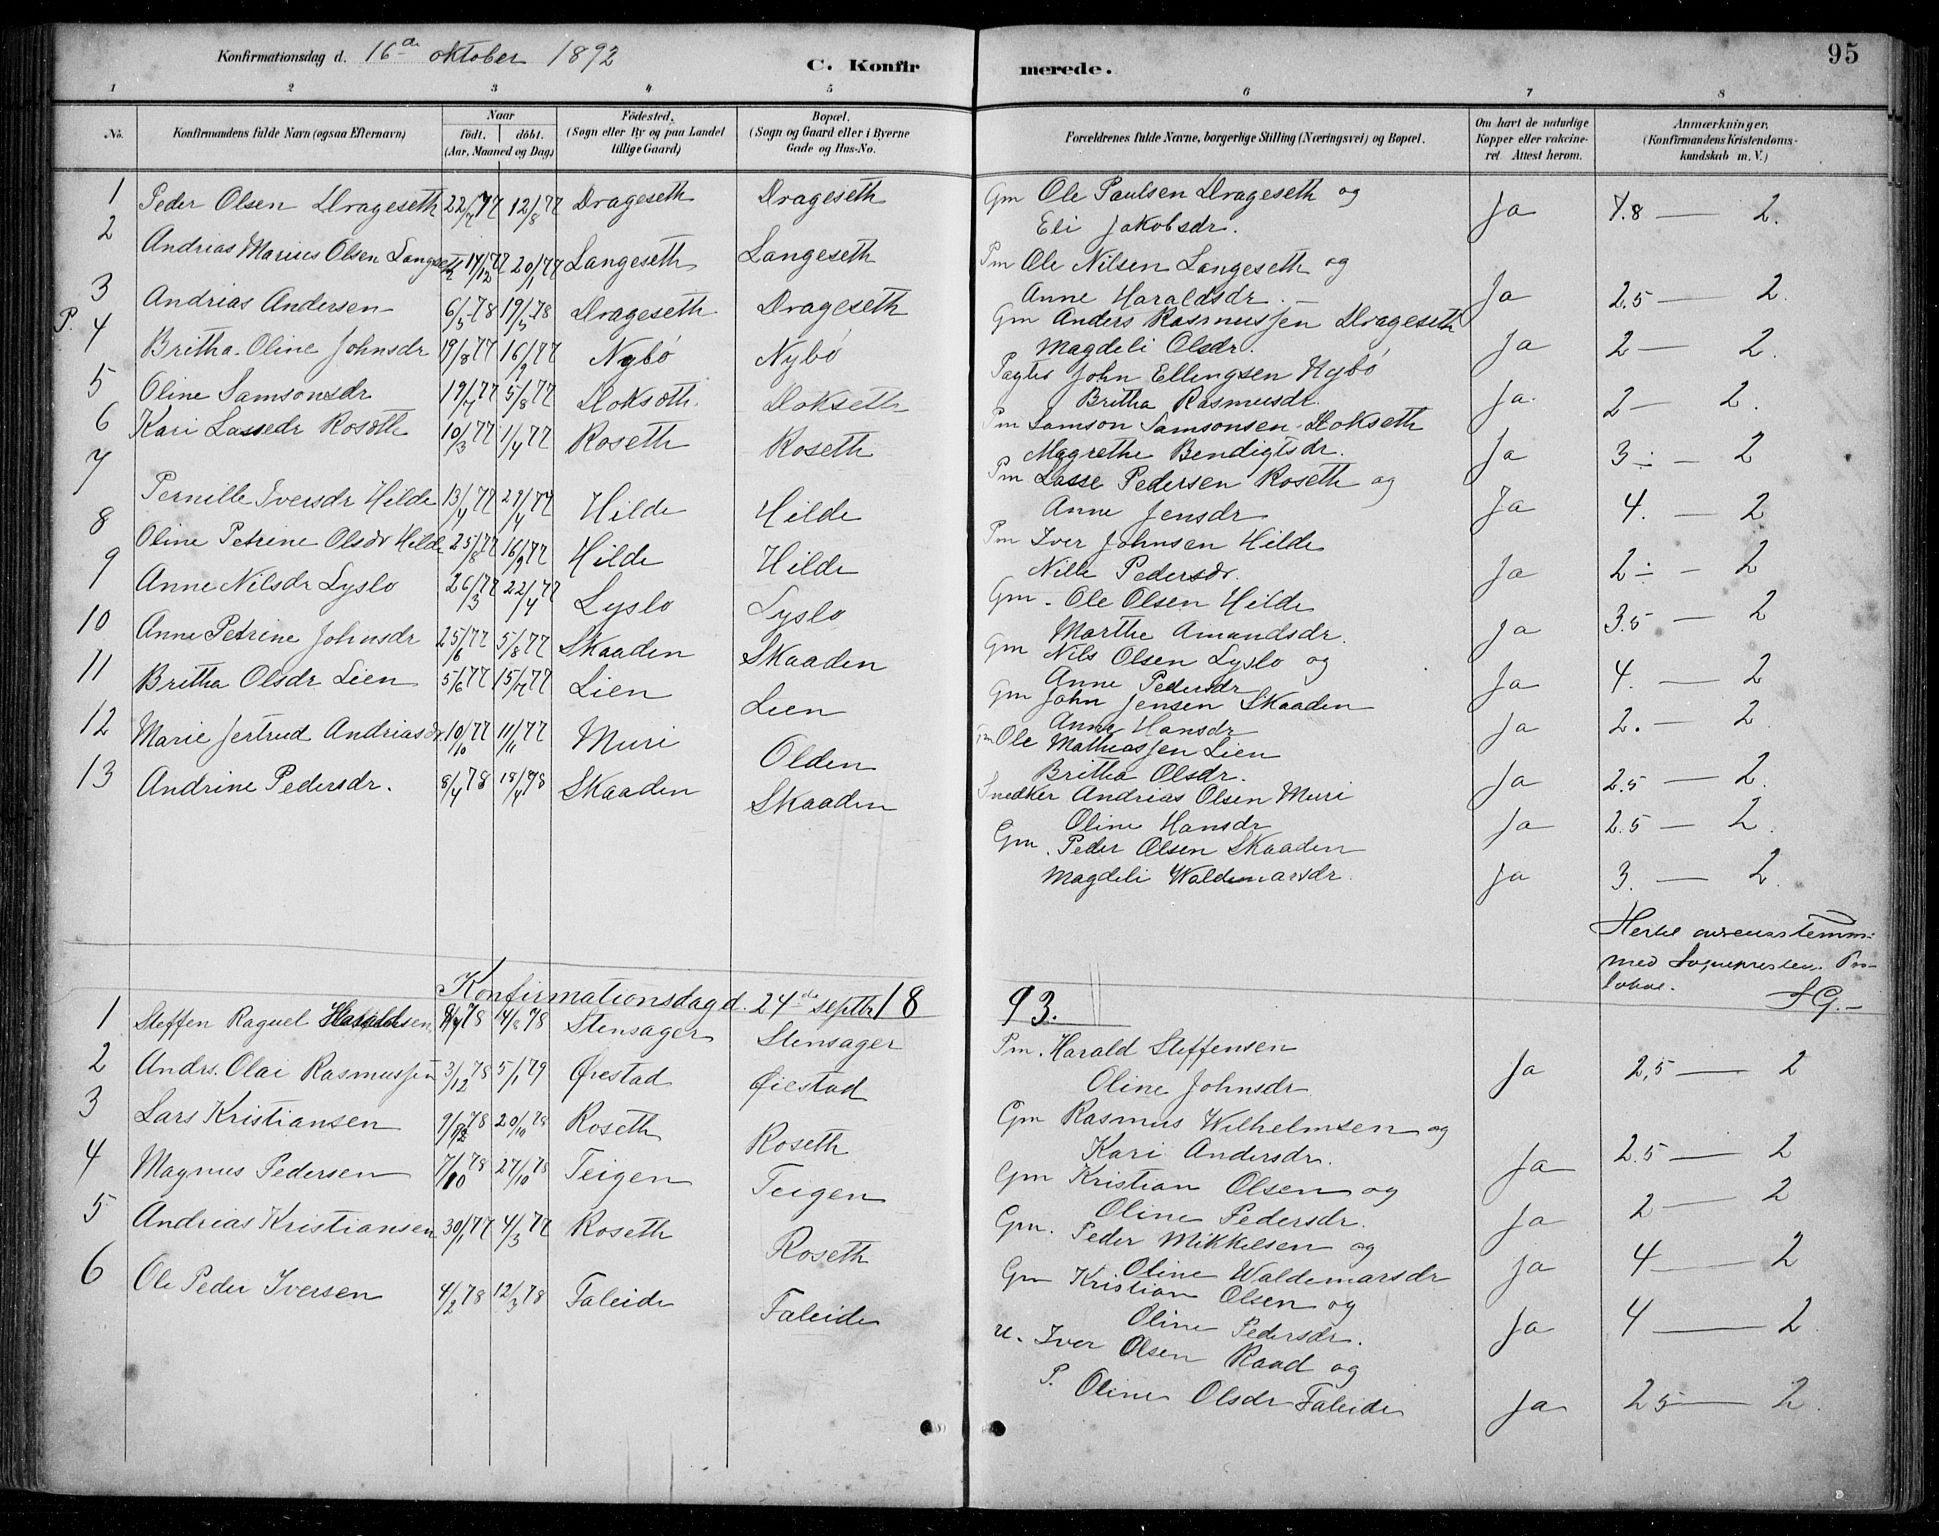 Konfirmationsdag d. 16de oktober 1892
C. Konfirmerede.
95
1 2 3 4 5 6 7 8
No.
Konfirmandens fulde Navn (ogsaa Efternavn)
Naar
födt. döbt.
(Aar, Maaned og Dag)
Födested.
(Sogn eller By og paa Landet
tillige Gaard)
Bopæl.
(Sogn og Gaard eller i Byerne
Gade og Hus-No.
Forældrenes fulde Navne, borgerlige Stilling (Næringsvei) og Bopæl.
Om havt de naturlige
Kopper eller vakcine-
ret Attest herom.
Anmærkninger.
(Konfirmandens Kristendoms-
kundskab m. V.)
1 Peder Olsen Drageseth 22/7 77 12/8 77 Drageseth Drageseth Gm Ole Paulsen Drageseth og
Eli Jakobsdr. Ja 1.8 — 2.
2 Andrias Marius Olsen Langseth 14/12 77 20/1 77 Langeseth Langeseth Pm Ole Nilsen Langeseth og
Anne Haraldsdr. Ja 2.5 — 2.
3 Andrias Andersen 6/3 78 19/3 78 Drageseth Drageseth Gm Anders Rasmussen Drageseth
Magdeli Olsdr. Ja 2 — 2.
P. 4 Britha Oline Johnsdr 19/8 77 16/9 77 Nybö Nybö John Ellingsen Nybö
Britha Rasmusdr. Ja. 2 — 2.
5 Oline Samsonsdr 19/7 77 5/8 77 Dokseth Dokseth Pm Samson Samsonsen Dokseth
Magrethe Bendigtsdr. Ja 3 ÷ - 2
6 Kari Lassedr Roseth 10/3 77 1/4 77 Roseth Roseth Pm Lasse Pedersen Roseth og
Anne Jensdr Ja 4. - 2
7 Pernille Iversdr Hilde 13/4 77 29/4 77 Hilde Hilde Pm Iver Johnsen Hilde
Nille Pedersdr. Ja 2 ÷ - 2
8 Oline Petrine Olsdr Hilde 25/8 77 16/9 77 Hilde Hilde Gm - Ole Olsen Hilde
Marthe Amundsdr. Ja 3.5 - 2
9 Anne Nilsdr Lyslo 26/3 77 22/4 77 Lyslo Lyslo Gm Nils Olsen Lyslo og
Anne Pedersdr Ja 4. — 2
10 Anne Petrine Johnsdr 25/6 77 5/8 77 Skaaden Skaaden Gm John Jensen Skaaden
Anne Hansdr Ja 2. - 2.
11 Britha Olsdr Lien 5/6 77 15/7 77 Lien Lien Ole Mathiassen Lien
Britha Olsdr. Ja 2.5 — 2.
12 Marie Jertrud Andriasdr 10/10 77 11/11 77 Muri Olden Snedker Andrias Olsen Muri
Oline Hansdr Ja 2.5 — 2.
13 Andrine Pedersdr. 8/4 78 18/4 78 Skaaden Skaaden Gm. Peder Olsen Skaaden
Magdeli Waldemarsdr. Ja 3. — 2.
med
SG.-
Konfirmationsdag d. 24de septbr 1893.
1 Steffen Raguel Haraldsen 14/8 78 Stensager Stensager Pm. Harald Steffensen
Oline Johnsdr. Ja 2,5 — 2
2 Andrs. Olai Rasmussen 3/12 78 5/1 79 Ørestad Øiestad Gm Rasmus Wilhelmsen og
Kari Andersdr. Ja 2.5 — 2
3 Lars Kristiansen 20/10 78 Roseth Roseth Gm Kristian Olsen og
Oline Pedersdr. Ja 2 — 2
4 Magnus Pedersen 7/10 78 27/10 78 Teigen Teigen Gm. Peder Mikkelsen og
Oline Waldemarsdr Ja 4 — 2
5 Andrias Kristiansen 30/1 77 4/3 77 Roseth Roseth Gm Kristian Olsen og
Oline Pedersdr. Ja 4 — 2
6 Ole Peder Iversen 4/2 78 12/3 78 Faleide Faleide u. Iver Olsen Raad og
P. Oline Olsdr Faleide Ja 2 5 — 2.